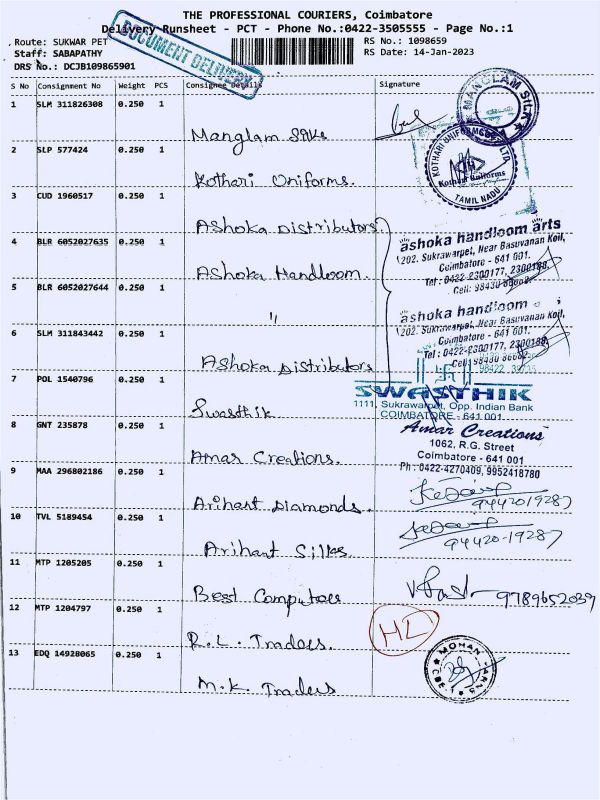 THE PROFESSIONAL COURIERS, Coimbatore
Delivery Runsheet - PCT - Phone No.:0422-3505555 - Page No.:1
Route: SUKWAR PET
RS No.: 1098659
Staff: SABAPATHY
RS Date: 14-Jan-2023
DRS No.: DCJB109865901
DOCUMENT DELIVERY
S No Consignment No Weight PCS Consignee Details Signature
1 SLM 311826308 0.250 1 Manglam Silks
MANGLAM SILK
2 SLP 577424 0.250 1 Kothari Uniforms.
Kothari Uniforms
TAMIL NADU
3 CUD 1960517 0.250 1 Ashoka Distributors
4 BLR 6052027635 0.250 1 Ashoka Handloom.
ashoka handloom arts
202. Sukrawarpet, Near Basuvanan Koil,
Coimbatore - 641 001.
Tel : 0422-2300177, 2300188,
Cell: 98430
5 BLR 6052027644 0.250 1 "
ashoka handloom
202. Sukrawarpet, Near Basuvanan Koil,
Coimbatore - 641 001.
Tel : 0422-2300177, 2300188,
6 SLM 311843442 0.250 1 Ashoka Distributors
7 POL 1540796 0.250 1 Swasthik
SWASTHIK
1111, Sukrawarpet, Opp. Indian Bank
COIMBATORE - 641 001
8 GNT 235878 0.250 1 Amar Creations.
Amar Creations
1062, R.G. Street
Coimbatore - 641 001
Ph : 0422-4270409, 9952418780
9 MAA 296802186 0.250 1 Arihant Diamonds.
9442019287
10 TVL 5189454 0.250 1 Arihant Silks
94420-19287
11 MTP 1205205 0.250 1 Best Computers
9789652039
12 MTP 1204797 0.250 1 R.L. Traders.
HL
13 EDQ 14928065 0.250 1 M.K. Traders
MOHAN YARNS
CBE-1